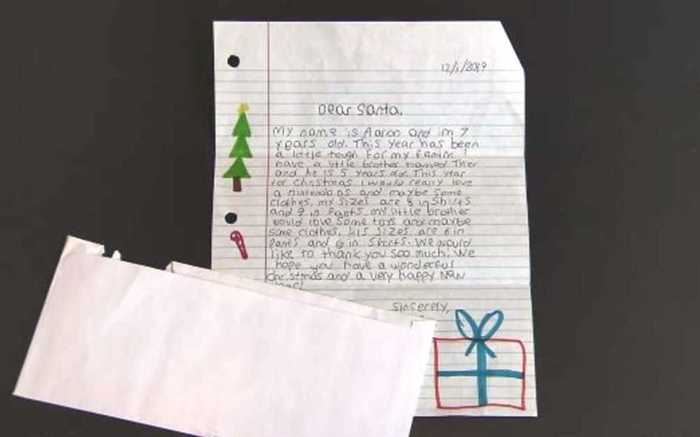 12/1/2019
Dear Santa,
My name is Aaron and im 7
years old. This year has been
a little tough for my family I
have a little brother named
and he is 5 years old. This year
for christmas I would really love
a nintendo ds and maybe some
clothes, my sizes are 8 in shirts
and 8 in Pants. my little brother
would love some toys and maybe
some clothes, his sizes are 6 in
Pants and 6 in shirts. We would
like to thank you soo much! We
hope you have a wonderful
christmas and a very happy New
Sincerely,